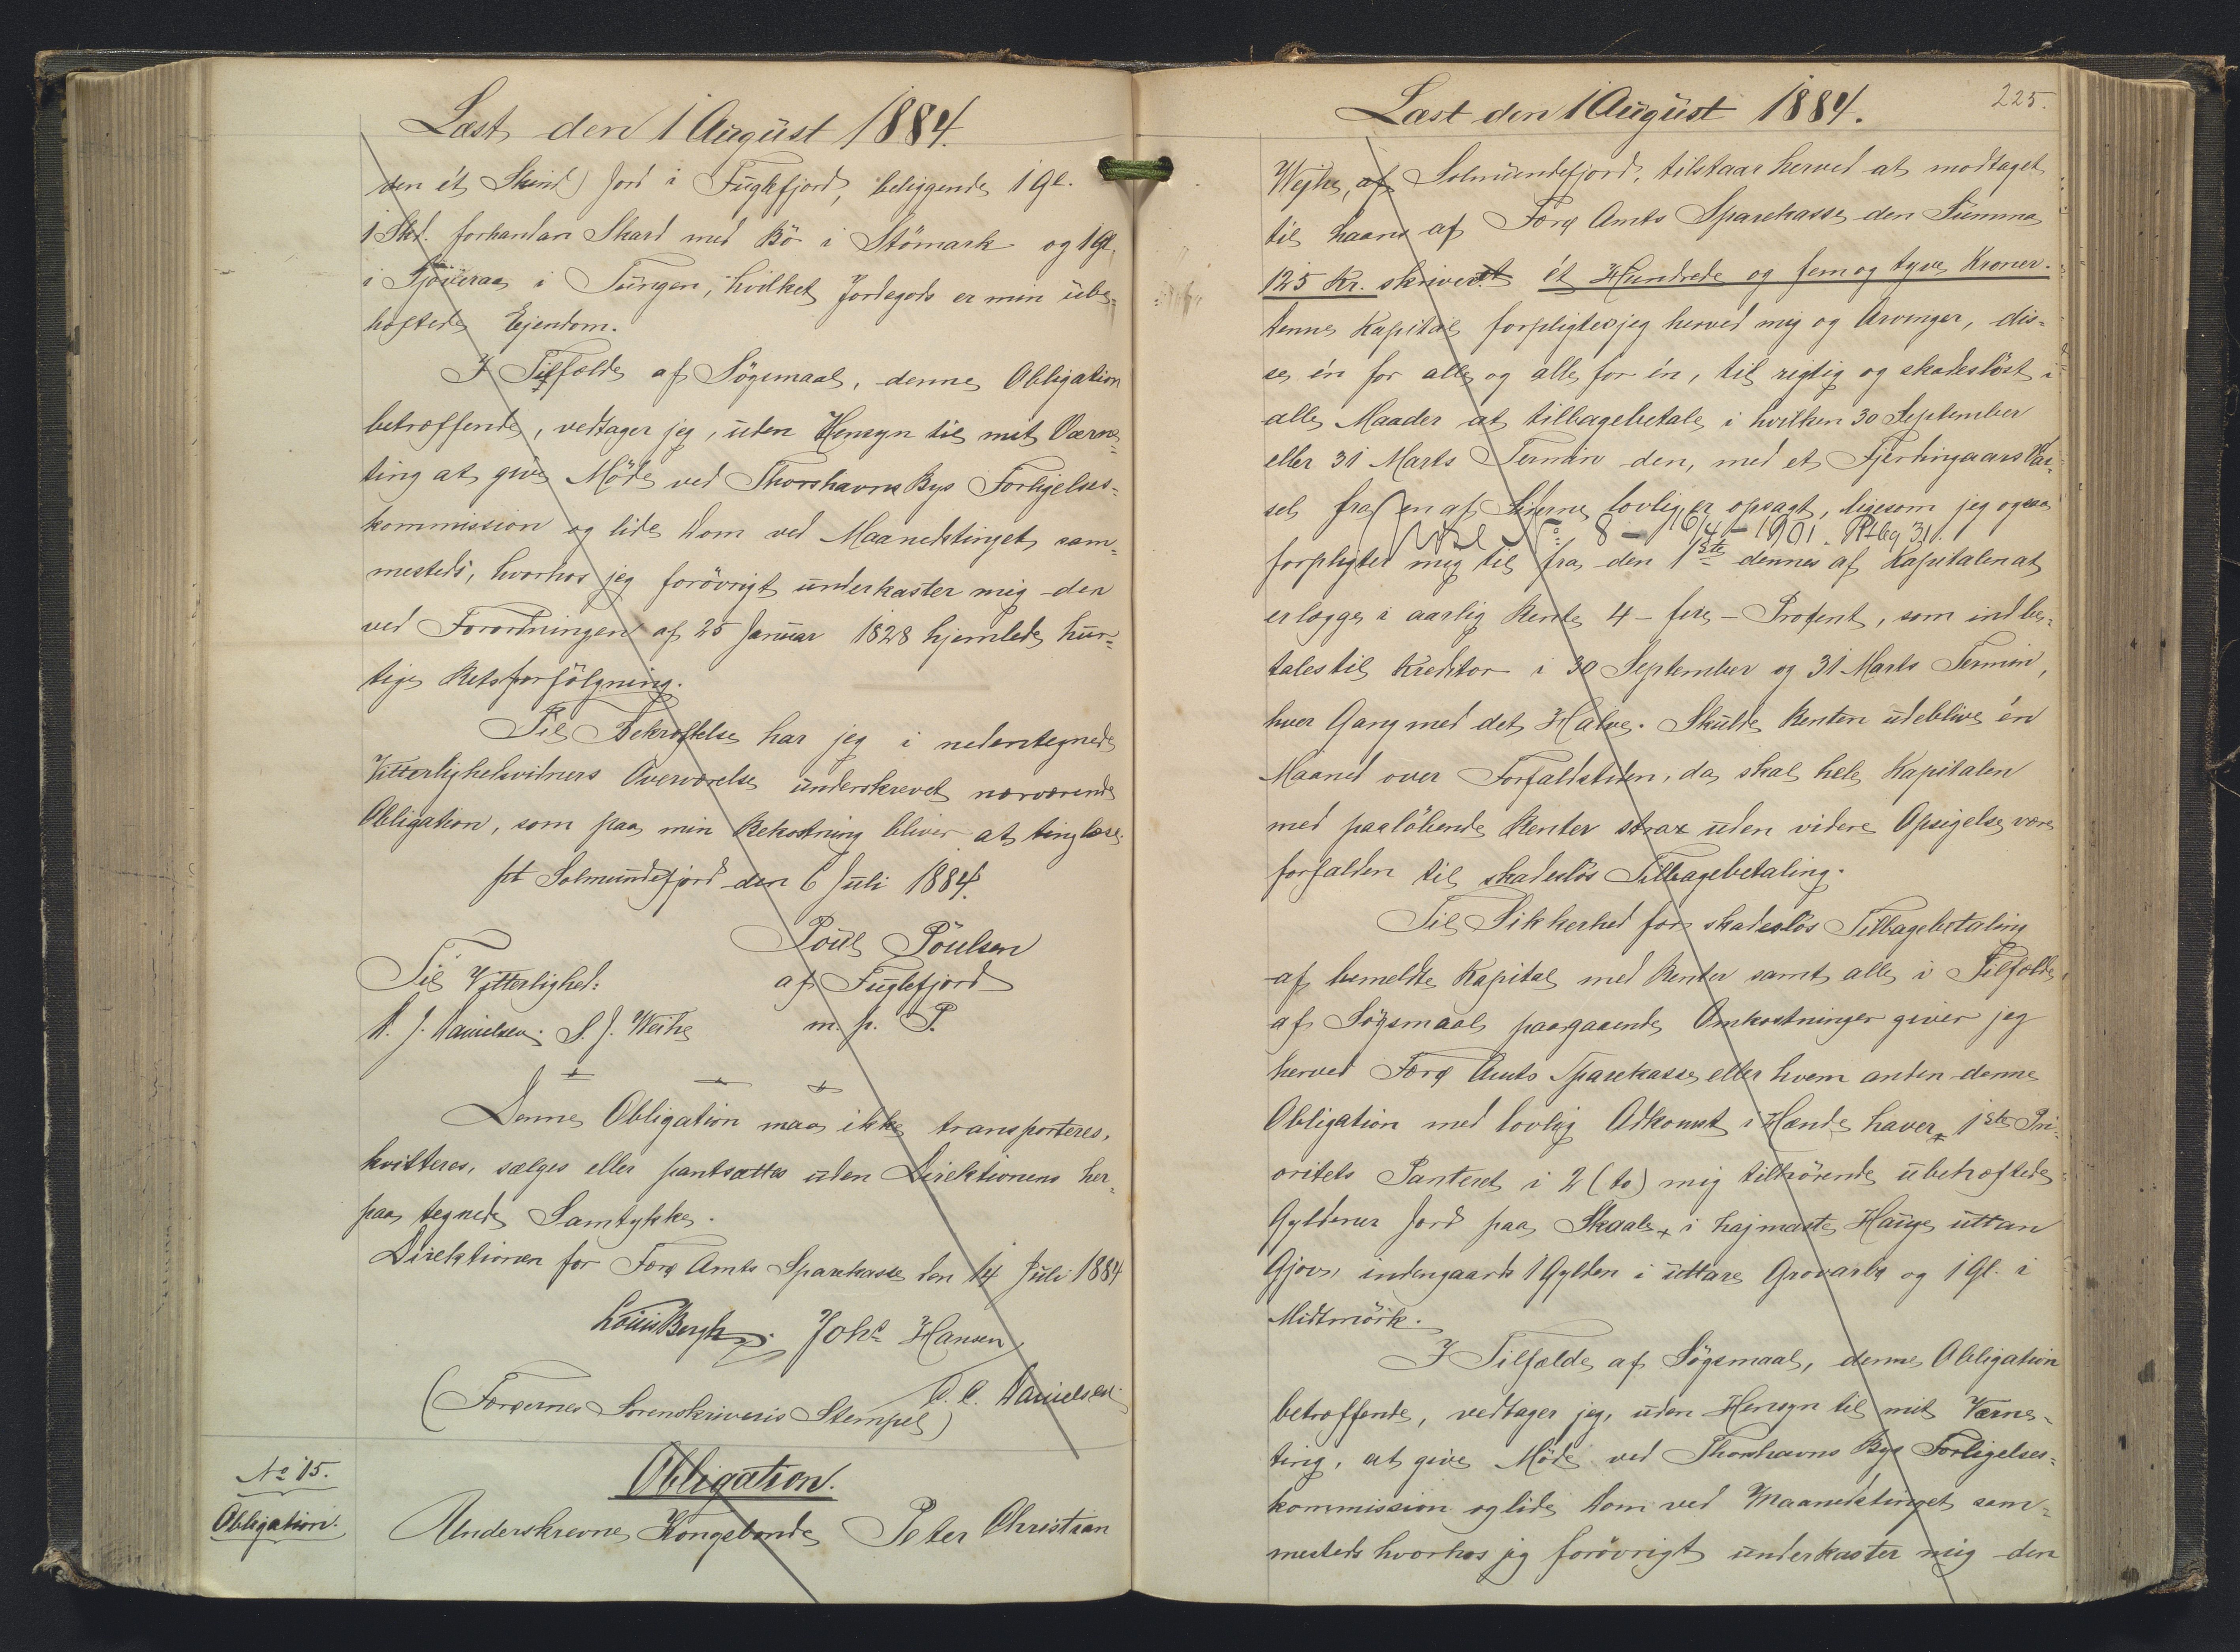 Læst den 1 August 1884.
den ét Skind) Jord i Fuglefjord, beliggende 1 Gl.
1 Skd. forhandan Skard med Bö i Stömark og 1 Gl.
i Tjöveraa i Tungen, hvilket Jordegods er min ube-
hæftede Ejendom.
I Tilfælde af Sögsmaal, denne Obligation
betræffende, vedtager jeg, uden Hensyn til mit Værne-
ting at give Möde ved Thorshavns Bys Forligelses-
kommission og lide Dom ved Maanedstinget sam-
mesteds, hvorhos jeg forövrigt underkaster mig den
ved Forordningen af 25 Januar 1828 hjemlede hur-
tige Retsforfölgning.
Til Bekræftelse har jeg i nedentegnede
Vitterlighedsvidners Overværelse underskrevet nærværende
Obligation, som paa min Bekostning bliver at tinglæse.
pt Solmundefjord den 6 Juli 1884.
Poul Poulsen
Til Vitterlighed: af Fuglefjord
D. J. Danielsen. S. J. Weihe m. p. P.
Denne Obligation maa ikke transporteres,
kvitteres, sælges eller pantsættes uden Direktionens her-
paa tegnede Samtykke.
Direktionen for Færø Amts Sparekasse den 14 Juli 1884
Louis Bergh. Johs Hansen
C. C. Danielsen
(Færøernes Sorenskriveris Stempel)
No 15.
Obligation.
Obligation.
Underskrevne Kongsbonde Peter Christian
Læst den 1 August 1884.
225.
Wejhe, af Solmundefjord, tilstaar herved at modtaget
til laans af Færø Amts Sparekasse den Summa
125 Kr. skriver ét Hundrede og fem og tyve Kroner.
denne Kapital forpligter jeg herved mig og Arvinger, dis-
se én for alle og alle for én, til rigtig og skadeslöst i
alle Maader at tilbagebetale i hvilken 30 September
eller 31 Marts Termin den, med et Fjerdingaars Var-
sel fra en af Siderne lovlig er opsagt, ligesom jeg ogsaa
Udsl No 8 - 16/4 - 1901. Ptbg 31.
forpligter mig til fra den 1ste dennes af Kapitalen at
erlægge i aarlig Rente 4 - fire - Procent, som indbe-
tales til Kreditor i 30 September og 31 Marts Termin,
hver Gang med det Halve. Skulde Renten udeblive én
Maaned over Forfaldstiden, da skal hele Kapitalen
med paalöbende Renter strax uden videre Opsigelse være
forfalden til skadeslös Tilbagebetaling.
Til Sikkerhed for skadeslös Tilbagebetaling
af bemeldte Kapital med Renter samt alle i Tilfælde
af Sögsmaal paagaaende Omkostninger giver jeg
herved Færø Amts Sparekasse eller hvem anden denne
Obligation med lovlig Adkomst i Hænde haver 1ste Pri-
oritets Panteret i 2 (to) mig tilhörende ubehæftede
Gylden Jord paa Skaale i hajmaste Hauge uttan
Gjov, indengaards 1 Gylden i uttare Grovarba og 1 Gl. i
Midtmörk.
I Tilfælde af Sögsmaal, denne Obligation
betræffende, vedtager jeg, uden Hensyn til mit Værne-
ting, at give Möde ved Thorshavns Bys Forligelses-
kommission og lide Dom ved Maanedstinget sam-
mesteds hvorhos jeg forövrigt underkaster mig den